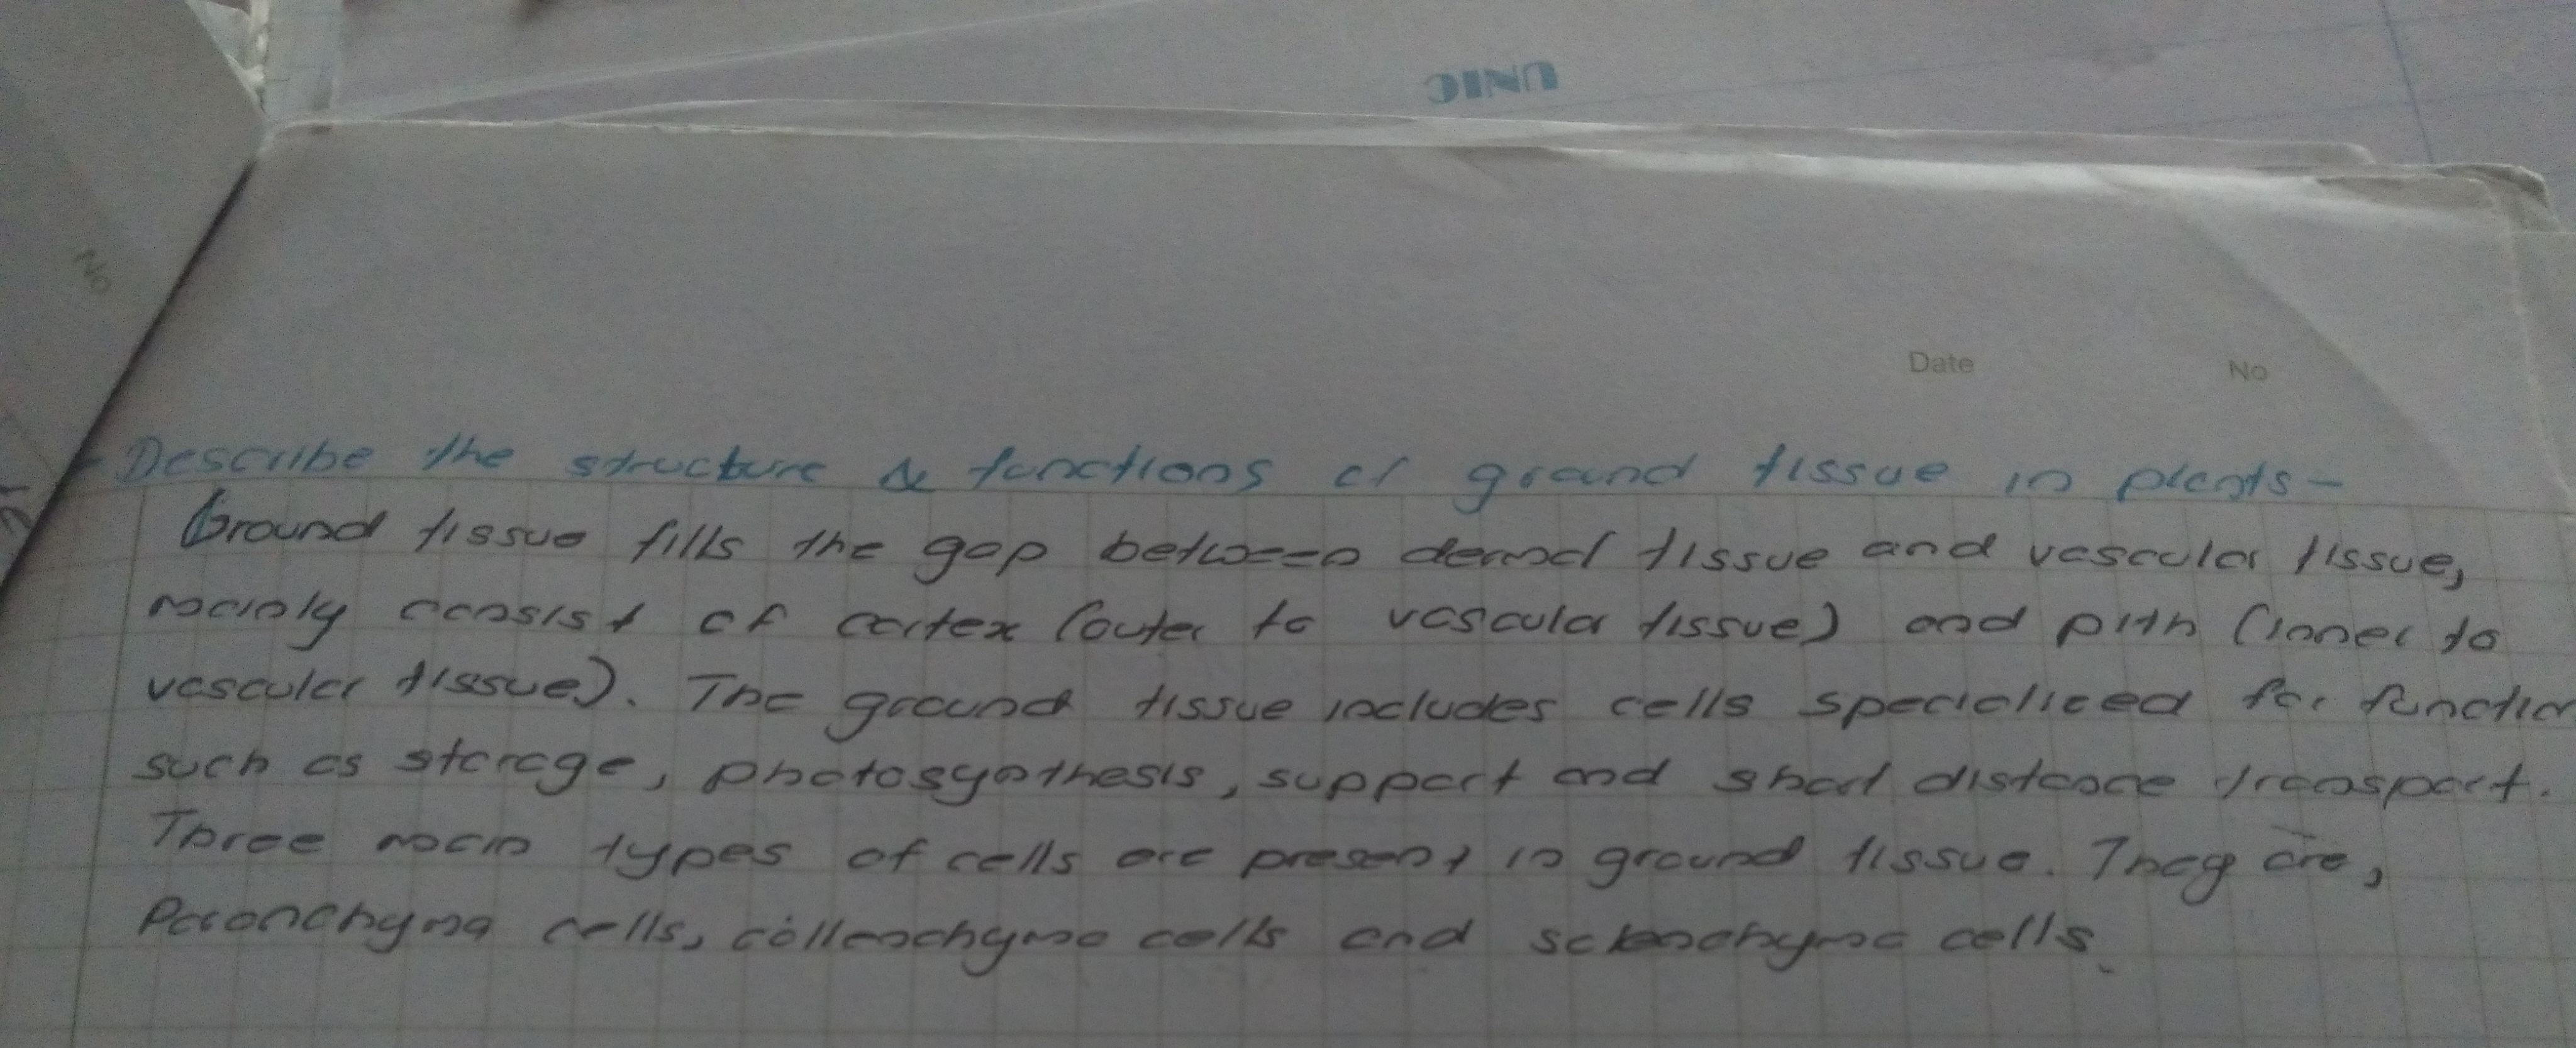 UNIC
Date No
No
Describe the structure & functions of ground tissue in plants-
Ground tissue fills the gap between dermal tissue and vascular tissue,
mainly consist of cortex (outer to vascular tissue) and pith (inner to
vascular tissue). The ground tissue includes cells specialized for function
such as storage, photosynthesis, support and short distance transport.
Three main types of cells are present in ground tissue. They are,
Parenchyma cells, collenchyma cells and sclerenchyma cells.